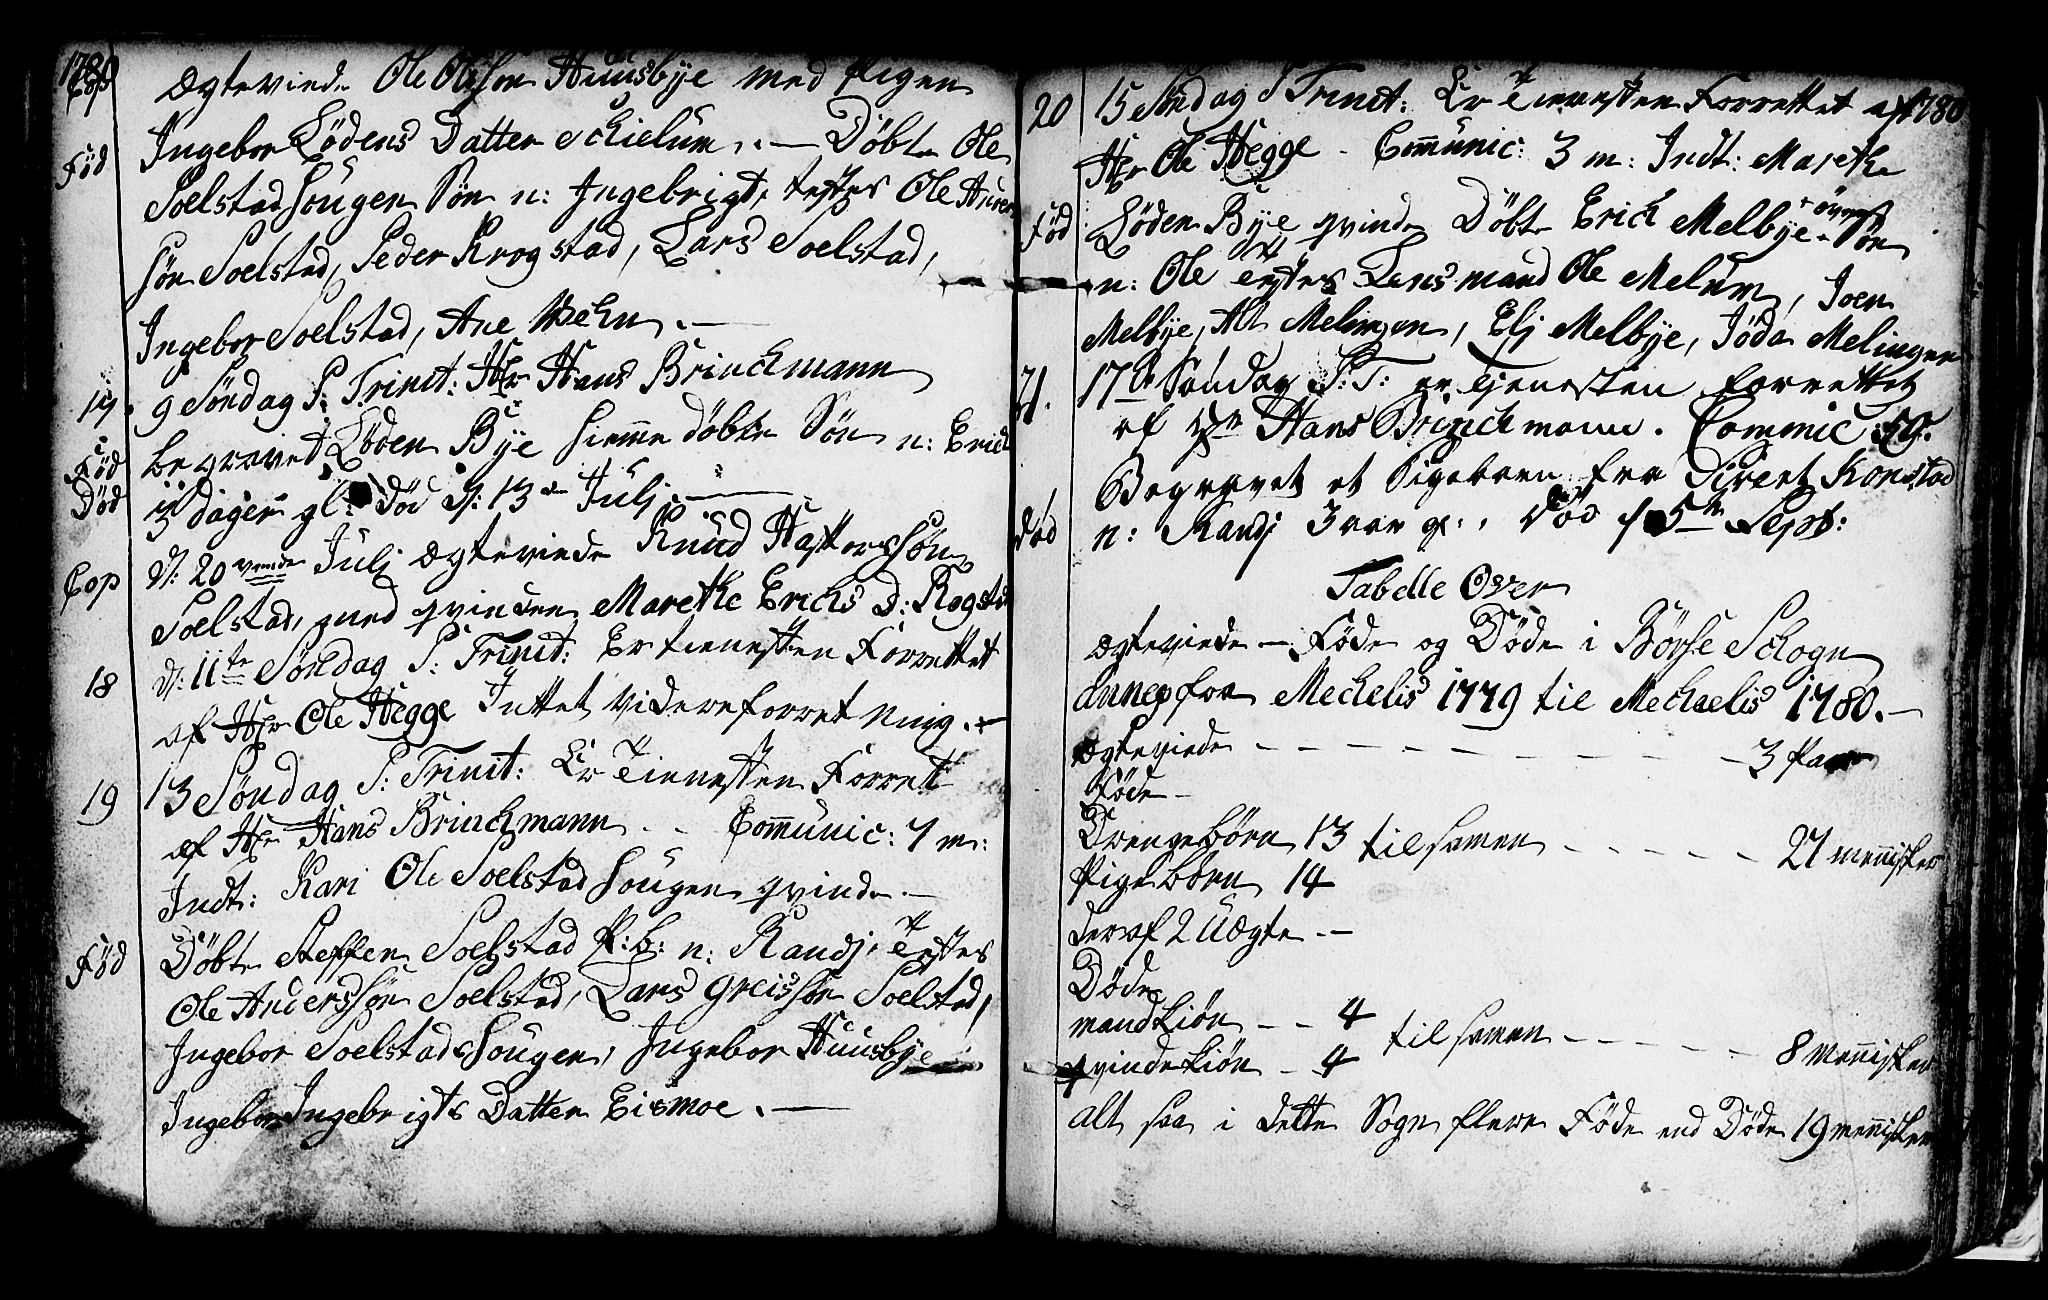 1780
Cop Ægteviede Ole Olsøn Huusbye med Pigen
Ingebor Lødens Datter Schielum. — Døbte Ole
Fød Soelstad Hougen Søn n: Ingebrigt, testes Ole Anders
søn Soelstad, Peder Krogstad, Lars Soelstad,
Ingebor Soelstad, Ane Wehn. —
17. 9 Søndag P: Trinit: Hr Hans Brinchmann
begravet Løden Bye hiemme døbte Søn n: Erich
Fød
Død 3 dager gl: Død d: 13de Julj. —
d: 20 Julj Ægteviede Knud
Cop Soelstad, med qvinden Marethe Erichs D: Rogstad
18 d: 11te Søndag P: Trinit: Er tienesten Forrettet
af Hr Ole Hegge Intet videre forretning. —
19 13 Søndag P: Trinit: Er Tienesten Forrett
af Hr Hans Brinchmann - - Communic: 7 m:
Indt: Kari Ole Soelstad Hougen qvinde. —
Fød Døbte Steffen Soelstad P: b: n: Randj, Testes
Ole Anderssøn Soelstad, Lars Greissøn Soelstad,
Ingebor Soelstads Hougen, Ingebor Huusbye
Ingebor Ingebrigts Datter Eismoe. —
20 15 Søndag P Trinit: Er Tienesten Forrettet af 1780
Hr Ole Hegge - Communic: 3 m: Indt: Marethe
Fød Løden Bye qvinde Døbte Erich Melbye Søn
n: Ole Testes Lensmand Ole Melum, Joen
Melbye, Melingen, Elj Melbye, Melingen
21. 17de Søndag P: T: er Tjenesten forrettet
af Hr Hans Brinchmann. Commic 59.
Begravet et Pigebarn fra Sivert Konstad
død n: Randj 3 aar gl. Død d 5te Sept:
Tabelle Over
Ægteviede — Føde og Døde i Børse Schogn
Annex fra Mechelis 1779 til Mechaelis 1780. —
Ægteviede - - - - - - - - - 3 Par
Føde -
Drengebørn 13 til samen - - - - - - 27 mennisker
Pigebørn 14
deraf 2 Uægte. -
Døde
mandkiøn - - 4 til samen - - - - - - 8 mennisker
qvindekiøn - 4
alt saa i dette Sogn flere Føde end Døde 19 mennisker